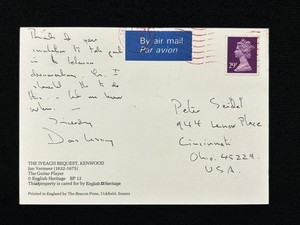 Thanks for your
invitation to take part
in the
documentary. Yes, I
should like to do
this. – Let me know
when. —
Sincerely
Doris Lessing
THE IVEAGH BEQUEST, KENWOOD
Jan Vermeer (1632-1675)
The Guitar Player
© English Heritage BP 12
This property is cared for by English Heritage
Printed in England by The Beacon Press, Uckfield, Sussex
By air mail
Par avion
29p
Peter Seidel
944 Lenox Place
Cincinnati
Ohio. 45229.
U.S.A.